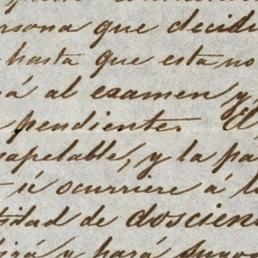 ersona que decidi
hasta que esta no
á al examen y
pendiente. El
apelable, y la pa
si ocurriere á l
tidad de doscien